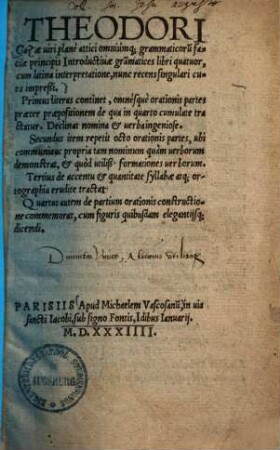 THEODORI
Gazæ uiri planè attici omniũmq; grammaticorũ fa-
cilè principis Introductiuæ grãmatices libri quatuor,
cum latina interpretatione, nunc recens singulari cu-
ra impressi.
Primus literas continet, omnésque orationis partes
præter præpositionem de qua in quarto cumulate tra
ctatur. Declinat nomina & uerba ingeniose.
Secundus item repetit octo orationis partes, ubi
communia ac propria tam nominum quàm uerborum
demonstrat, & quòd utiliss. formationes uerborum.
Tertius de accentu & quantitate syllabæ atq; or-
tographia erudite tractat.
Quartus autem de partium orationis constructione
commemorat, cum figuris quibusdam elegantijsq;
dicendi.
PARISIIS Apud Michaelem Vascosanũ, in uia
sancti Iacobi, sub signo Fontis, Idibus Ianuarij.
M. D. XXXIIII.